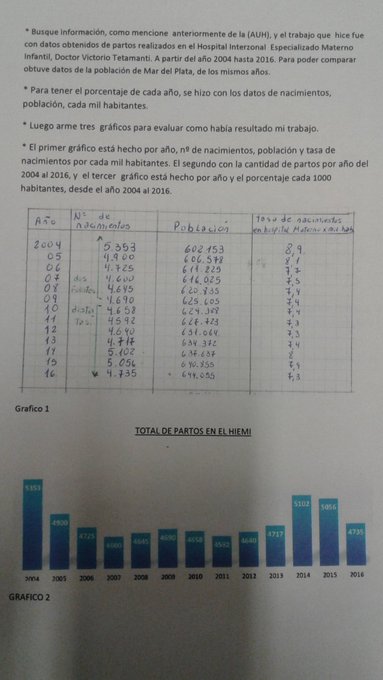 * Busque Información, como mencione anteriormente de la (AUH), y el trabajo que hice fue
con datos obtenidos de partos realizados en el Hospital Interzonal Especializado Materno
Infantil, Doctor Victorio Tetamanti. A partir del año 2004 hasta 2016. Para poder comparar
obtuve datos de la población de Mar del Plata, de los mismos años.
* Para tener el porcentaje de cada año, se hizo con los datos de nacimientos,
población, cada mil habitantes.
* Luego arme tres gráficos para evaluar como había resultado mi trabajo.
* El primer gráfico está hecho por año, nº de nacimientos, población y tasa de
nacimientos por cada mil habitantes. El segundo con la cantidad de partos por año del
2004 al 2016, y el tercer gráfico está hecho por año y el porcentaje cada 1000
habitantes, desde el año 2004 al 2016.
Año Nº de nacimientos Población tasa de nacimientos en hospital Materno x mil hab
2004 5.353 602153 8,9
05 4.900 606.578 8,1
06 4.725 7,7
07 4.600 616.025 7,5
08 4.645 620.835 7,4
09 4.690 625.605 7,4
10 4.658 7,4
11 4592 627.723 7,3
12 4.640 7,3
13 4.717 634.372 7,4
14 5.102 637.637 8
15 5.056 7,9
16 4.735 7,3
Grafico 1
TOTAL DE PARTOS EN EL HIEMI
5353 4900 4725 4600 4645 4690 4658 4592 4640 4717 5102 5056 4735
2004 2005 2006 2007 2008 2009 2010 2011 2012 2013 2014 2015 2016
GRAFICO 2